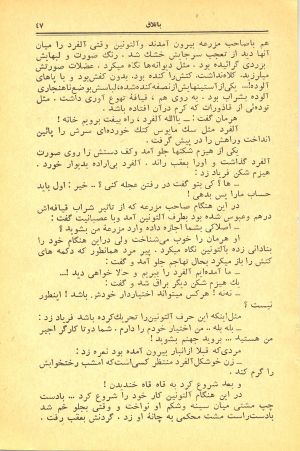 باتلاق
۴۷
هم باصاحب مزرعه بیرون آمدند والتونین وقتی آلفرد را میان
آنها دید از تعجب سرجایش خشك شد . رنگ صورت و لبهایش
بزردی گرائیده بود . مثل دیوانه‌ها نگاه میکرد . عضلات صورتش
میلرزید. کلاه‌نداشت. کتش‌را کنده بود. بدون کفش‌بود و با پاهای
آلوده!... یکی‌از آستینهایش‌از نصفه‌کنده‌شده، لباسش‌بوضع‌ناهنجاری
آلوده بشراب بود . به روی هم ، قیافهٔ تهوع آوری داشت . مثل
توده‌ئی از قاذورات که کرم درآن افتاده باشد .
هرمان گفت: ــ یاالله آلفرد ، راه بیفت برویم خانه !
آلفرد مثل سگ مأیوس کتك خورده‌ای سرش را پائین
انداخت وراهش را در پیش گرفت .
یکی از هیزم شکنها جلو آمد وکف دستش را روی صورت
آلفرد گذاشت و اورا بعقب راند . آلفرد بی‌اراده بدیوار خورد .
هیزم شکن فریاد زد :
ــ ها؟ کی بتو گفت در رفتن عجله کنی ؟ .. خیر ؛ اول باید
حساب مارا پس بدهی !
در این هنگام صاحب مزرعه که از تاثیر شراب قیافه‌اش
درهم وعبوس شده بود بطرف آلتونین آمد وبا عصبانیت گفت :
ــ اصلا کی بشما اجازه داده وارد مزرعهٔ من بشوید ؟
او هرمان را خوب می‌شناخت ولی دراین هنگام خود را
بنادانی زده باآلتونین نگاه میکرد . پیر مرد همانطور که دکمه های
کتش را باز میکرد بحال تهاجم جلو آمد و گفت :
ــ ما آمده‌ایم آلفرد را ببریم و حالا خواهی دید !...
یك هیزم شکن دیگر براق شد و گفت :
ــ نه‌نه ! هرکس میتواند اختیاردار خودش باشد ! اینطور
نیست ؟
مثل‌اینکه این حرف آلتونین‌را تحریك‌کرده‌باشد فریاد زد :
ــ بله بله .. من اختیار خودم را دارم . شما دوتا کارگر اجیر
من هستید ... بروید جهنم بشوید !
مردی‌که قبلا ازانبار بیرون آمده بود نعره زد :
ــ زن خوشگل‌آلفرد منتظر کسی‌است‌که‌امشب رختخوابش
را گرم کند .
و بعد شروع کرد به قاه قاه خندیدن !
در این هنگام آلتونین کار خود را شروع کرد ... بادست
چپ مشتی میان سینهٔ وشکم او نواخت و وقتی بجلو خم شد
بادست‌راست مشت محکمی به چانه او زد . گردنش بعقب رفت .